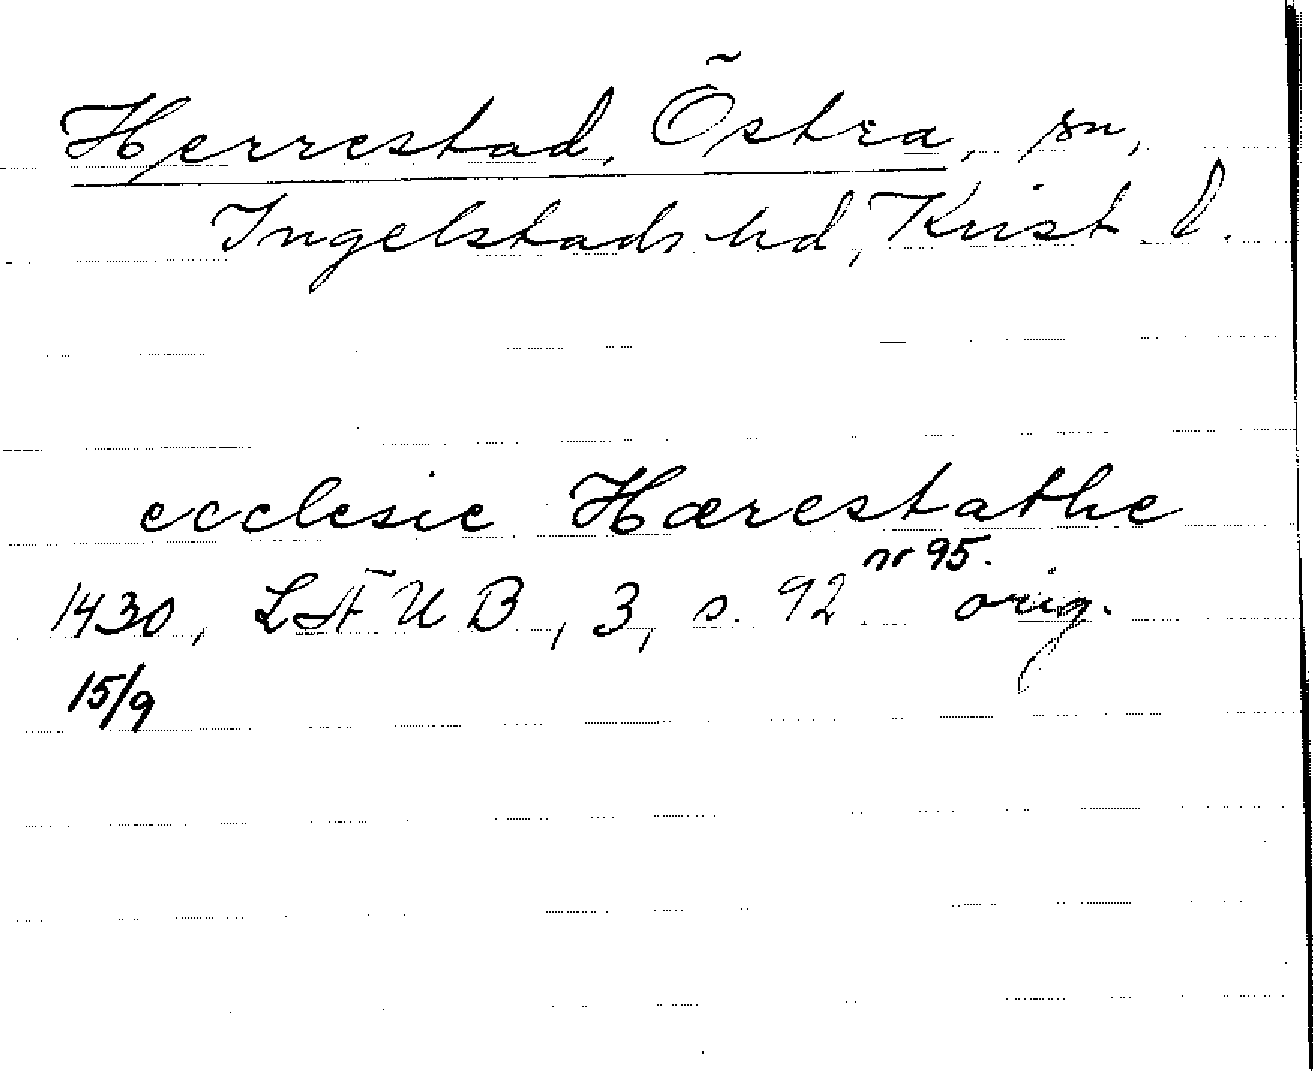 Herrestad, Östra, sn,
Ingelstads hd, Krist l.
ecclesie Hærestathe
nr 95.
1430, LÄUB, 3, s. 92 orig.
15/9